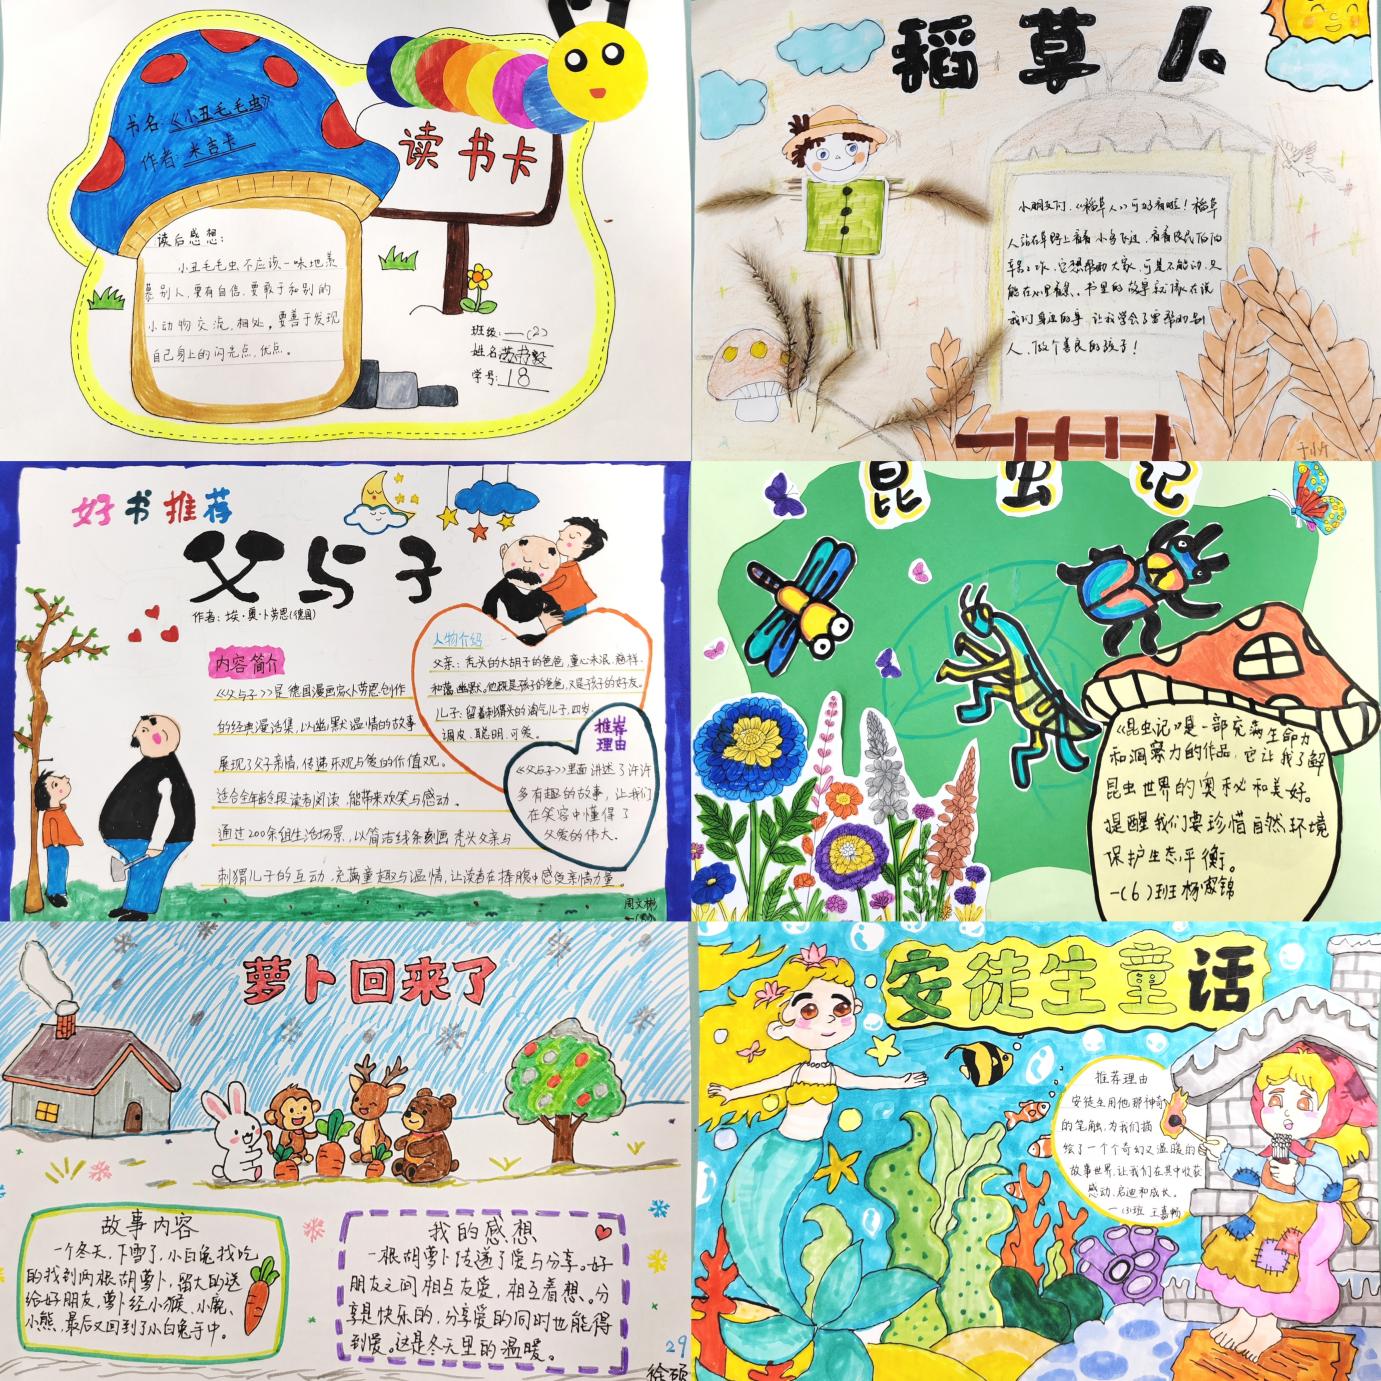 书名:《小丑毛毛虫》
作者:米吉卡
读书卡
读后感想:
小丑毛毛虫不应该一味地羡
慕别人,要有自信,要敢于和别的
小动物交流,相处。要善于发现
自己身上的闪光点,优点。
班级:一(2)
姓名
学号:18
稻草人
小朋友们,《稻草人》可好看啦!稻草
人站在草野上看着小鸟飞过,看着农民伯伯
辛苦工作,它想帮助大家,可是不能动,只
能在心里着急。书里的故事就像在说
我们身边的事,让我学会了要帮助别
人,做个善良的孩子!
好书推荐
父与子
作者:埃·奥·卜劳恩(德国)
内容简介
《父与子》是德国漫画家卜劳恩创作
的经典漫活集,以幽默温情的故事
展现了父子亲情,传递乐观与爱的价值观。
适合全年龄段读者阅读,能带来欢笑与感动。
通过200余组生活场景,以简洁线条刻画秃头父亲与
刺猬儿子的互动,充满童趣与温情,让读者在捧腹中感受亲情力量。
人物介绍
父亲:秃头的大胡子的爸爸,童心未泯,慈祥
和蔼幽默。他既是孩子的爸爸,又是孩子的好友。
儿子:留着刺猬头的淘气儿子,四岁,
调皮、聪明、可爱。
推荐
理由
《父与子》里面讲述了许许
多有趣的故事,让我们
在笑容中懂得了
父爱的伟大。
周文彬
昆虫记
《昆虫记》是一部充满生命力
和洞察力的作品,它让我了解
昆虫世界的奥秘和美好。
提醒我们要珍惜自然环境
保护生态平衡。
一(6)班杨宬锦
萝卜回来了
故事内容
一个冬天,下雪了,小白兔找吃
的找到两根胡萝卜,留大的送
给好朋友,萝卜经小猴、小鹿、
小熊,最后又回到了小白兔手中。
我的感想
一根胡萝卜传递了爱与分享。好
朋友之间相互友爱,相互着想。分
享是快乐的,分享爱的同时也能得
到爱。这是冬天里的温暖。
29
徐硕
安徒生童话
推荐理由
安徒生用他那神奇
的笔触,为我们描
绘了一个个奇幻又温暖的
故事世界,让我们在其中收获
感动、启迪和成长。
一(3)班 王嘉畅